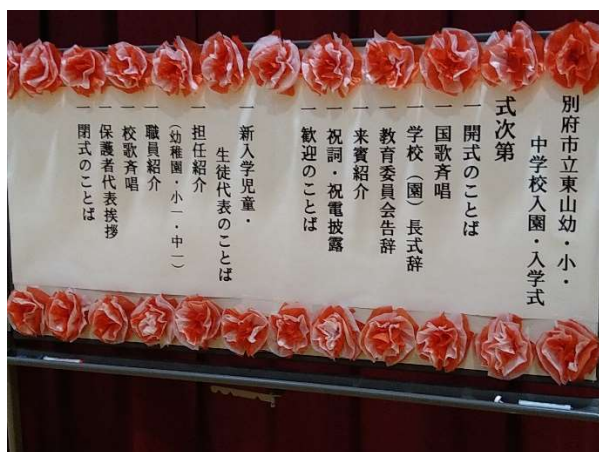 別府市立東山幼・小・
中学校入園・入学式
式次第
一 開式のことば
一 国歌斉唱
一 学校（園）長式辞
一 教育委員会告辞
一 来賓紹介
一 祝詞・祝電披露
一 歓迎のことば
一 新入学児童・
生徒代表のことば
一 担任紹介
（幼稚園・小一・中一）
一 職員紹介
一 校歌斉唱
一 保護者代表挨拶
一 閉式のことば